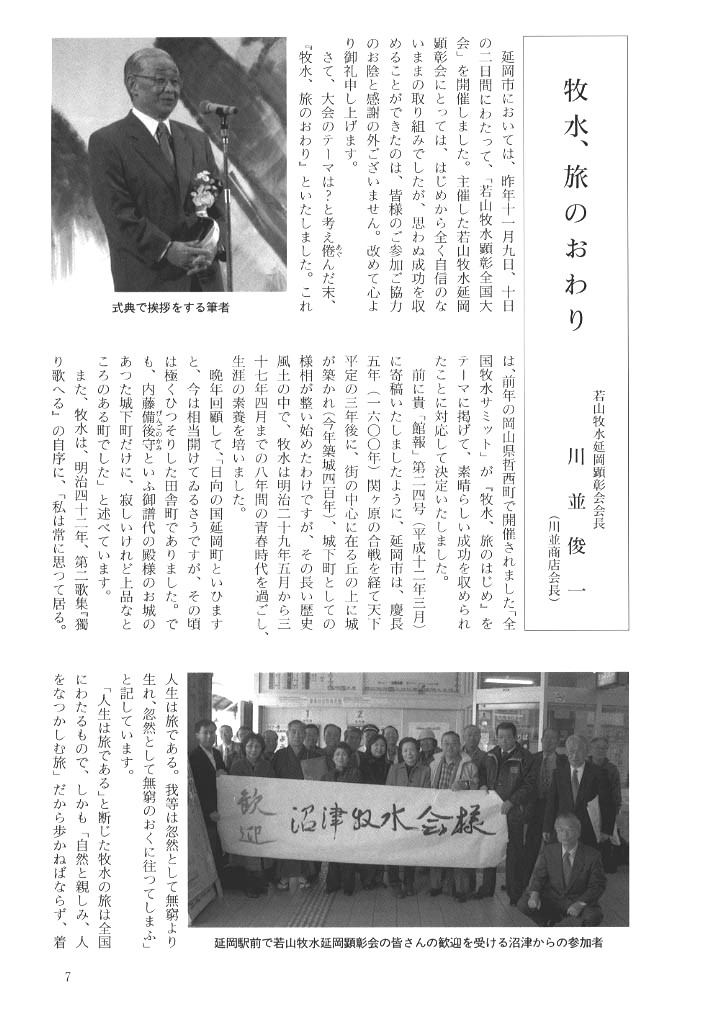 牧水、旅のおわり
若山牧水延岡顕彰会会長
川並俊一
（川並商店会長）
延岡市においては、昨年十一月九日、十日
の二日間にわたって、「若山牧水顕彰全国大
会」を開催しました。主催した若山牧水延岡
顕彰会にとっては、はじめから全く自信のな
いままの取り組みでしたが、思わぬ成功を収
めることができたのは、皆様のご参加ご協力
のお陰と感謝の外ございません。改めて心よ
り御礼申し上げます。
さて、大会のテーマは？と考え倦んだ末、
あぐ
『牧水、旅のおわり』といたしました。これ
式典で挨拶をする筆者
は、前年の岡山県哲西町で開催されました「全
国牧水サミット」が『牧水、旅のはじめ』を
テーマに掲げて、素晴らしい成功を収められ
たことに対応して決定いたしました。
前に貴「館報」第二四号（平成十二年三月）
に寄稿いたしましたように、延岡市は、慶長
五年（一六〇〇年）関ヶ原の合戦を経て天下
平定の三年後に、街の中心に在る丘の上に城
が築かれ（今年築城四百年）、城下町としての
様相が整い始めたわけですが、その長い歴史
風土の中で、牧水は明治二十九年五月から三
十七年四月までの八年間の青春時代を過ごし、
生涯の素養を培いました。
晩年回顧して、「日向の国延岡町といひます
と、今は相当開けてゐるさうですが、その頃
は極くひつそりした田舎町でありました。で
も、内藤備後守といふ御譜代の殿様のお城の
げんごのかみ
あつた城下町だけに、寂しいけれど上品なと
ころのある町でした」と述べています。
また、牧水は、明治四十二年、第二歌集『獨
り歌へる』の自序に、「私は常に思つて居る。
歓迎 沼津牧水会様
延岡駅前で若山牧水延岡顕彰会の皆さんの歓迎を受ける沼津からの参加者
人生は旅である。我等は忽然として無窮より
生れ、忽然として無窮のおくに往つてしまふ」
と記しています。
「人生は旅である」と断じた牧水の旅は全国
にわたるもので、しかも「自然と親しみ、人
をなつかしむ旅」だから歩かねばならず、着
7